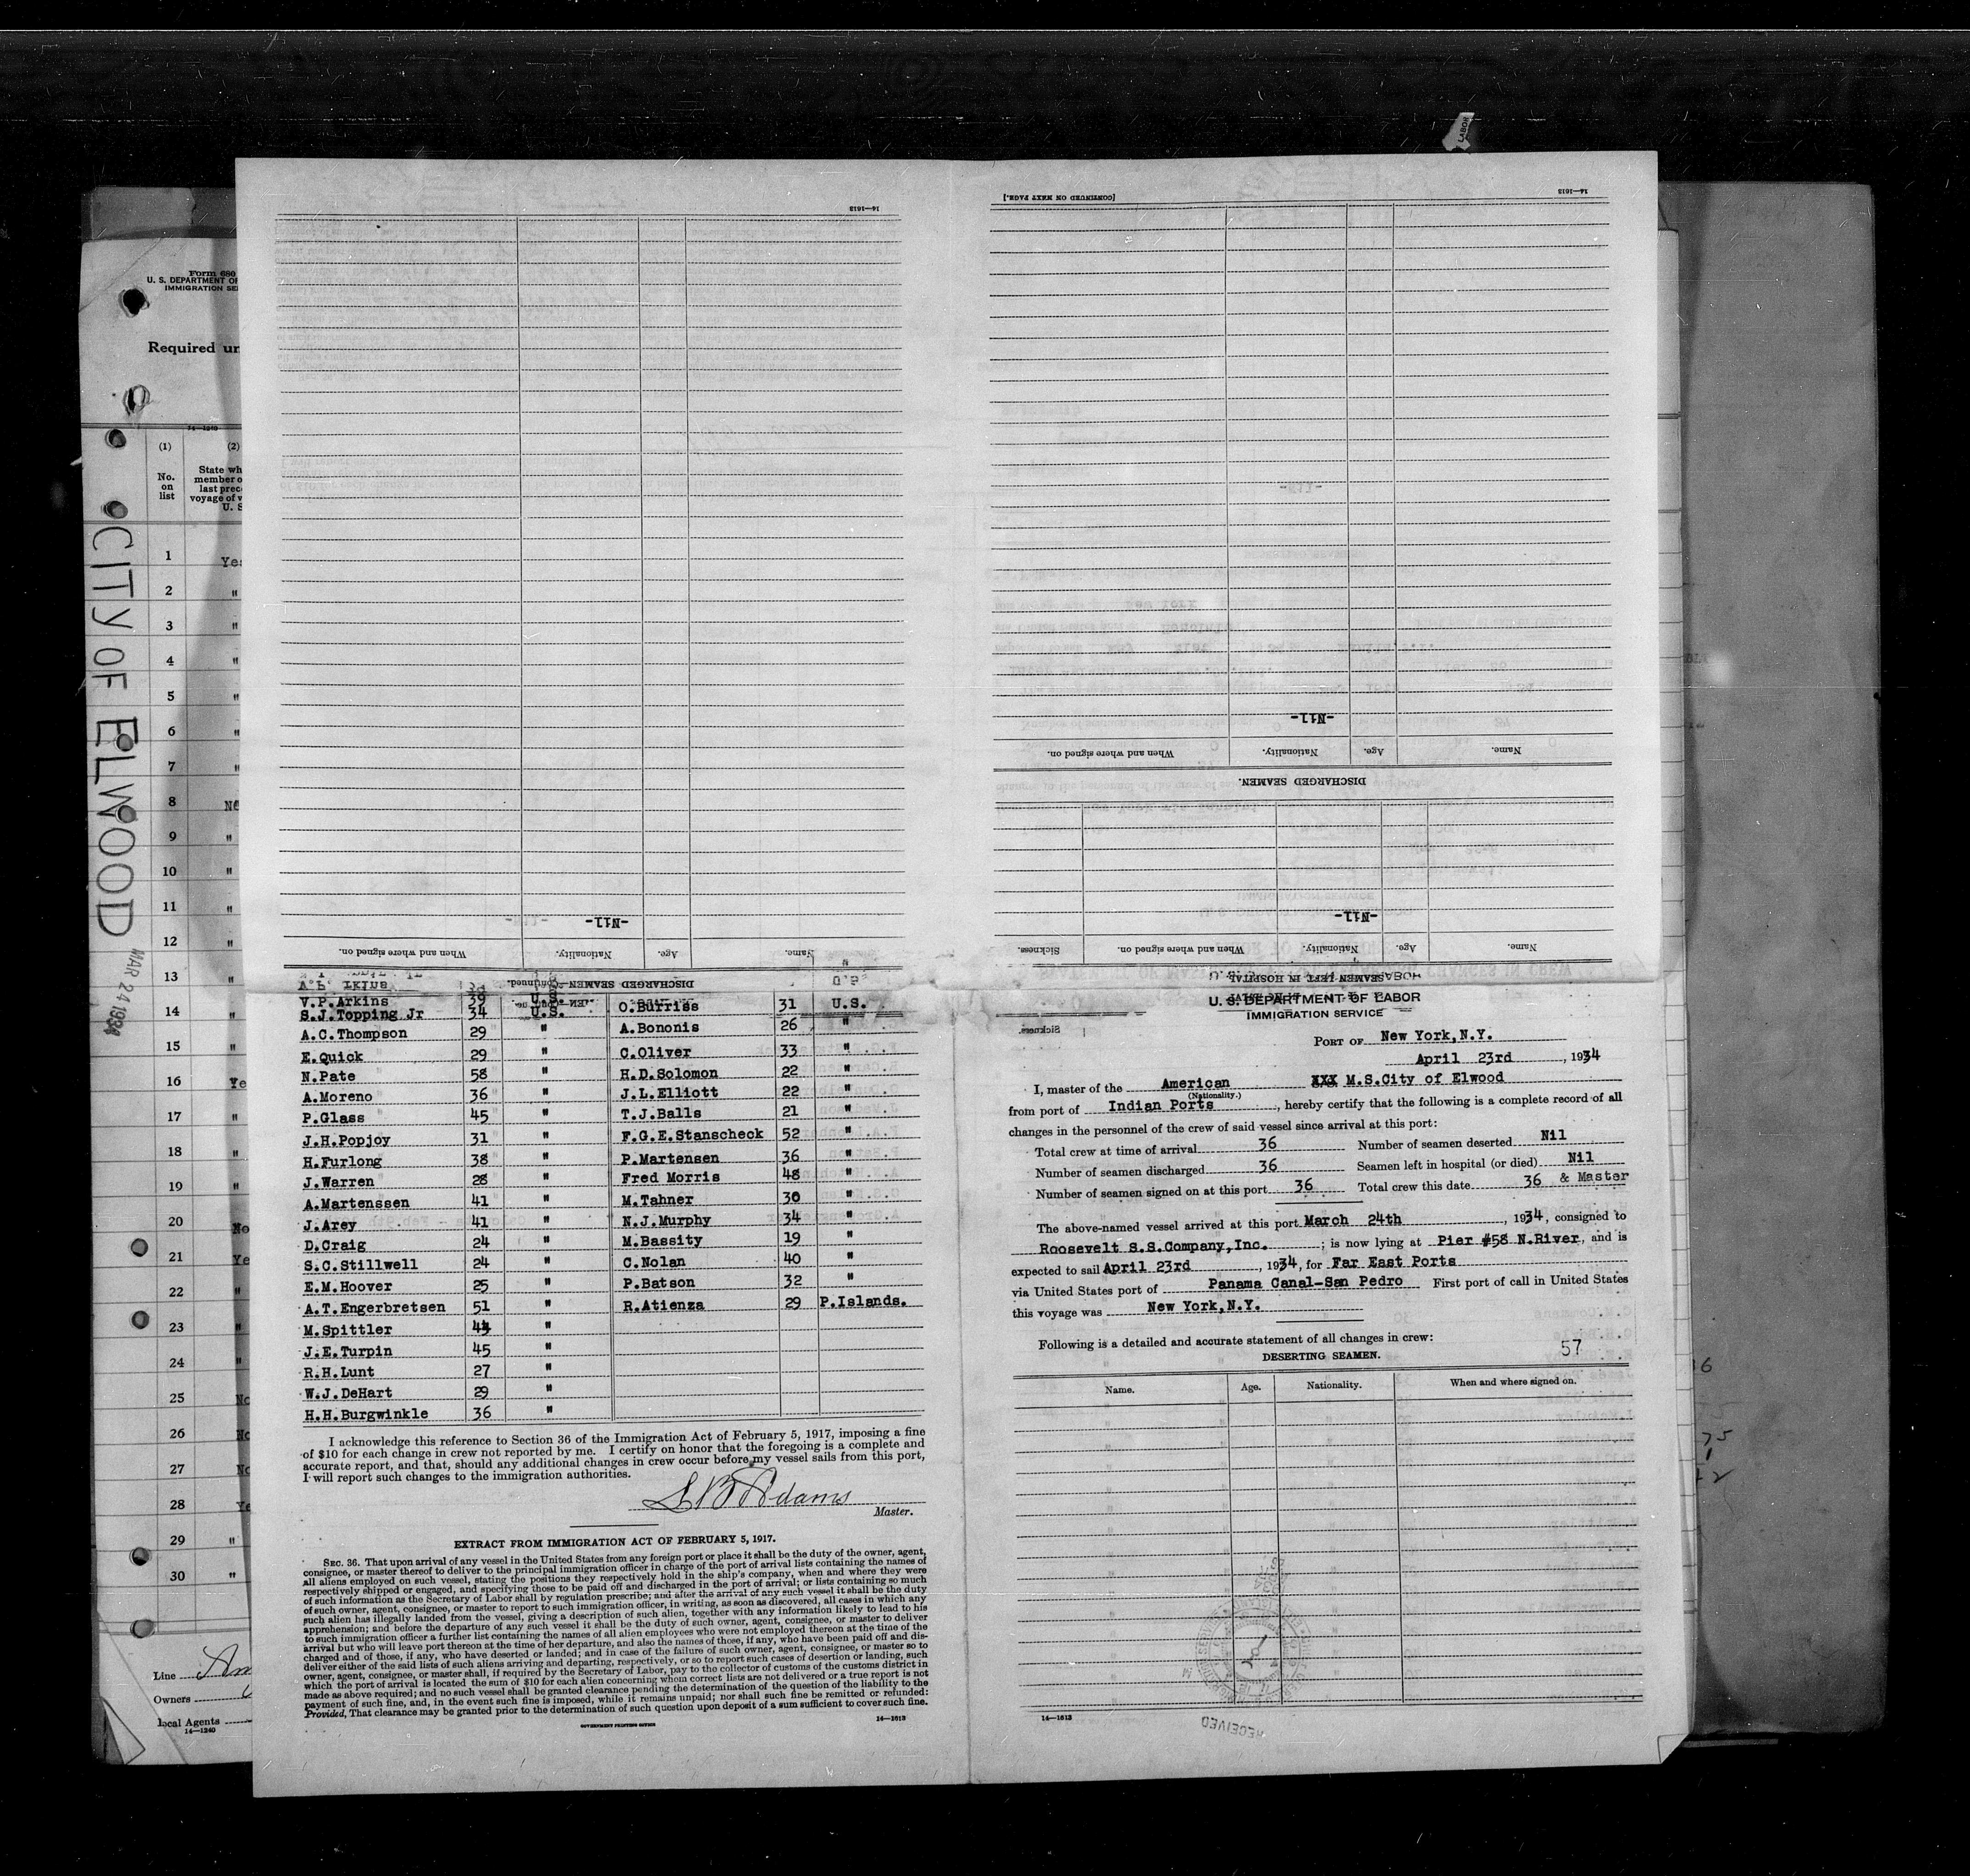 LABOR
Form 680
U. S. DEPARTMENT OF
IMMIGRATION SE
Required un
14—1240
(1)
(2)
No.
on
list
State wh
member o
last prec
voyage of v
U. S
1 Yes
2 "
3 "
4 "
5 "
6 "
7 "
8 No
9 "
10 "
11 "
12 "
13 "
14 "
15 "
16 Ye
17 "
18 "
19 "
20 No
21 Ye
22 "
23 "
24 "
25 No
26 No
27 No
28 Ye
29 "
30 "
CITY OF ELWOOD
MAR 24 1934
Line Am
Owners
local Agents
14—1240
14—1613
-Nil-
Name. Age. Nationality. When and where signed on.
DISCHARGED SEAMEN—Continued.
[CONTINUED ON NEXT PAGE.]
14—1613
-Nil-
Name. Age. Nationality. When and where signed on.
DISCHARGED SEAMEN.
-Nil-
Name. Age. Nationality. When and where signed on. Sickness.
SEAMEN LEFT IN HOSPITAL
V.P.Arkins 39 U.S. O.Burriss 31 U.S.
S.J.Topping Jr 34 U.S.
A.C.Thompson 29 " A.Bononis 26 "
E.Quick 29 " C.Oliver 33 "
N.Pate 58 " H.D.Solomon 22 "
A.Moreno 36 " J.L.Elliott 22 "
P.Glass 45 " T.J.Balls 21 "
J.H.Popjoy 31 " F.G.E.Stanscheck 52 "
H.Furlong 38 " P.Martensen 36 "
J.Warren 28 " Fred Morris 48 "
A.Martenssen 41 " M.Tahner 30 "
J.Arey 41 " N.J.Murphy 34 "
D.Craig 24 " M.Bassity 19 "
S.C.Stillwell 24 " C.Nolan 40 "
E.M.Hoover 25 " P.Batson 32 "
A.T.Engerbretsen 51 " R.Atienza 29 P.Islands.
M.Spittler "
J.E.Turpin 45 "
R.H.Lunt 27 "
W.J.DeHart 29 "
H.H.Burgwinkle 36 "
I acknowledge this reference to Section 36 of the Immigration Act of February 5, 1917, imposing a fine
of $10 for each change in crew not reported by me. I certify on honor that the foregoing is a complete and
accurate report, and that, should any additional changes in crew occur before my vessel sails from this port,
I will report such changes to the immigration authorities.
Adams
Master.
EXTRACT FROM IMMIGRATION ACT OF FEBRUARY 5, 1917.
SEC. 36. That upon arrival of any vessel in the United States from any foreign port or place it shall be the duty of the owner, agent,
consignee, or master thereof to deliver to the principal immigration officer in charge of the port of arrival lists containing the names of
all aliens employed on such vessel, stating the positions they respectively hold in the ship's company, when and where they were
respectively shipped or engaged, and specifying those to be paid off and discharged in the port of arrival; or lists containing so much
of such information as the Secretary of Labor shall by regulation prescribe; and after the arrival of any such vessel it shall be the duty
of such owner, agent, consignee, or master to report to such immigration officer, in writing, as soon as discovered, all cases in which any
such alien has illegally landed from the vessel, giving a description of such alien, together with any information likely to lead to his
apprehension; and before the departure of any such vessel it shall be the duty of such owner, agent, consignee, or master to deliver
to such immigration officer a further list containing the names of all alien employees who were not employed thereon at the time of the
arrival but who will leave port thereon at the time of her departure, and also the names of those, if any, who have been paid off and dis-
charged and of those, if any, who have deserted or landed; and in case of the failure of such owner, agent, consignee, or master so to
deliver either of the said lists of such aliens arriving and departing, respectively, or so to report such cases of desertion or landing, such
owner, agent, consignee, or master shall, if required by the Secretary of Labor, pay to the collector of customs of the customs district in
which the port of arrival is located the sum of $10 for each alien concerning whom correct lists are not delivered or a true report is not
made as above required; and no such vessel shall be granted clearance pending the determination of the question of the liability to the
payment of such fine, and, in the event such fine is imposed, while it remains unpaid; nor shall such fine be remitted or refunded:
Provided, That clearance may be granted prior to the determination of such question upon deposit of a sum sufficient to cover such fine.
GOVERNMENT PRINTING OFFICE
14—1613
U. S. DEPARTMENT OF LABOR
IMMIGRATION SERVICE
Sickness.
PORT OF New York,N.Y.
April 23rd, 1934
I, master of the American XXX M.S.City of Elwood
(Nationality.)
from port of Indian Ports, hereby certify that the following is a complete record of all
changes in the personnel of the crew of said vessel since arrival at this port:
Total crew at time of arrival 36 Number of seamen deserted Nil
Number of seamen discharged 36 Seamen left in hospital (or died) Nil
Number of seamen signed on at this port 36 Total crew this date 36 & Master
The above-named vessel arrived at this port March 24th, 1934, consigned to
Roosevelt S.S.Company,Inc.; is now lying at Pier #58 N.River, and is
expected to sail April 23rd, 1934, for Far East Ports
via United States port of Panama Canal-San Pedro First port of call in United States
this voyage was New York,N.Y.
Following is a detailed and accurate statement of all changes in crew:
57
DESERTING SEAMEN.
Name. Age. Nationality. When and where signed on.
14—1613
RECEIVED